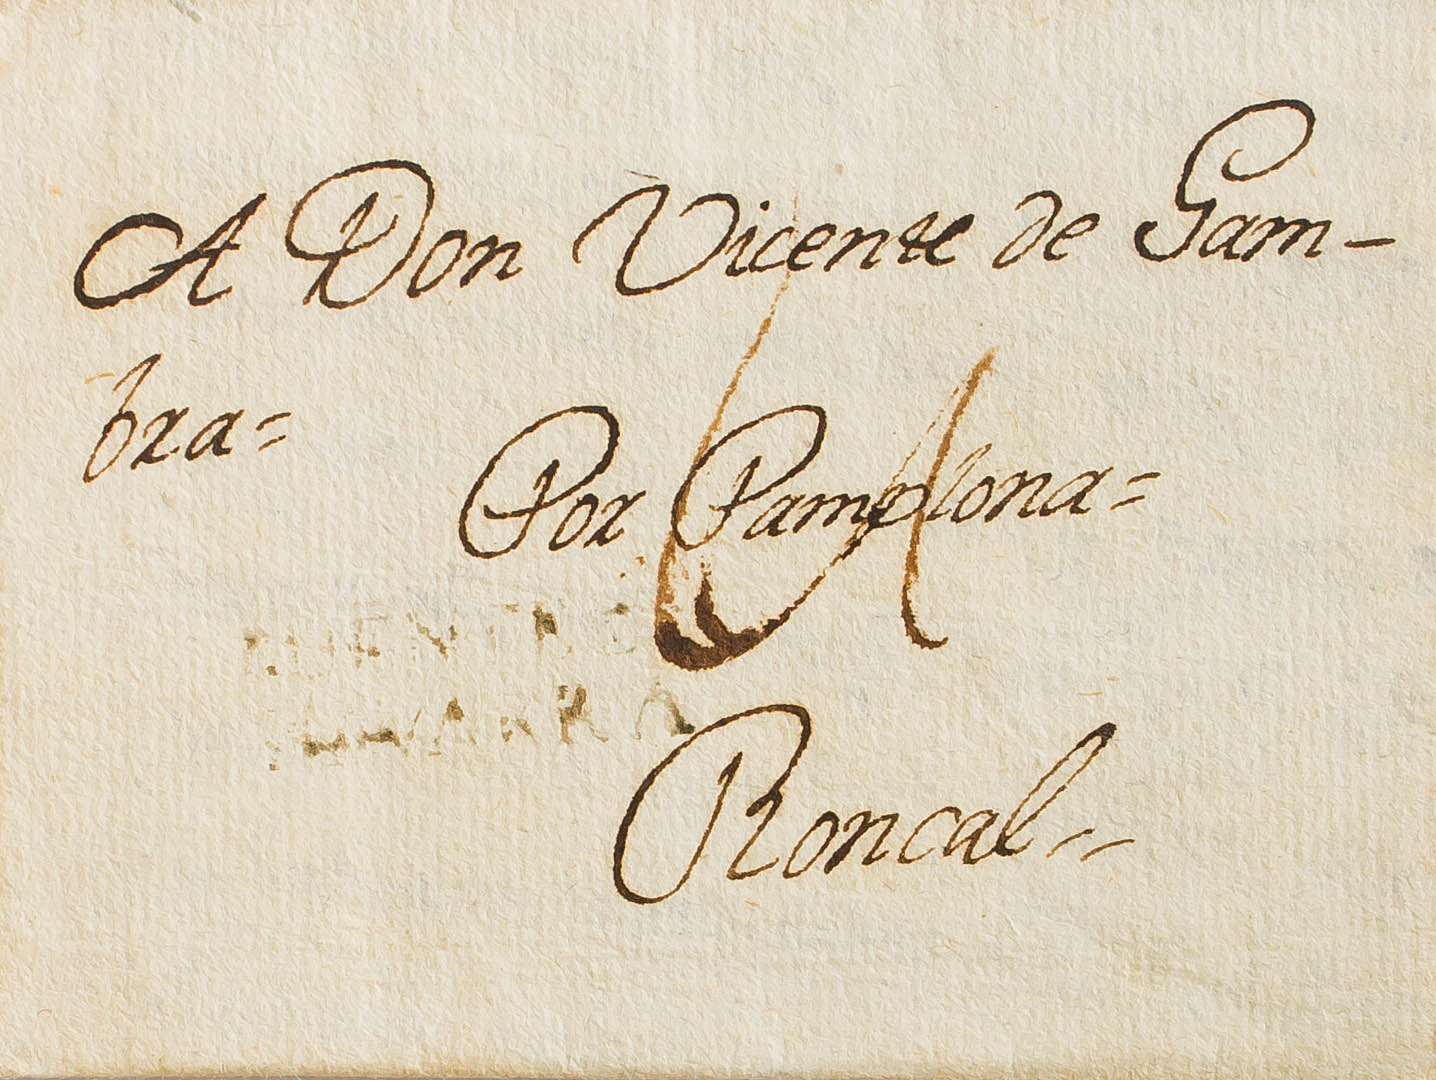 A Don Vicente de Gam-
bra=
Por Pamplona=
Roncal=